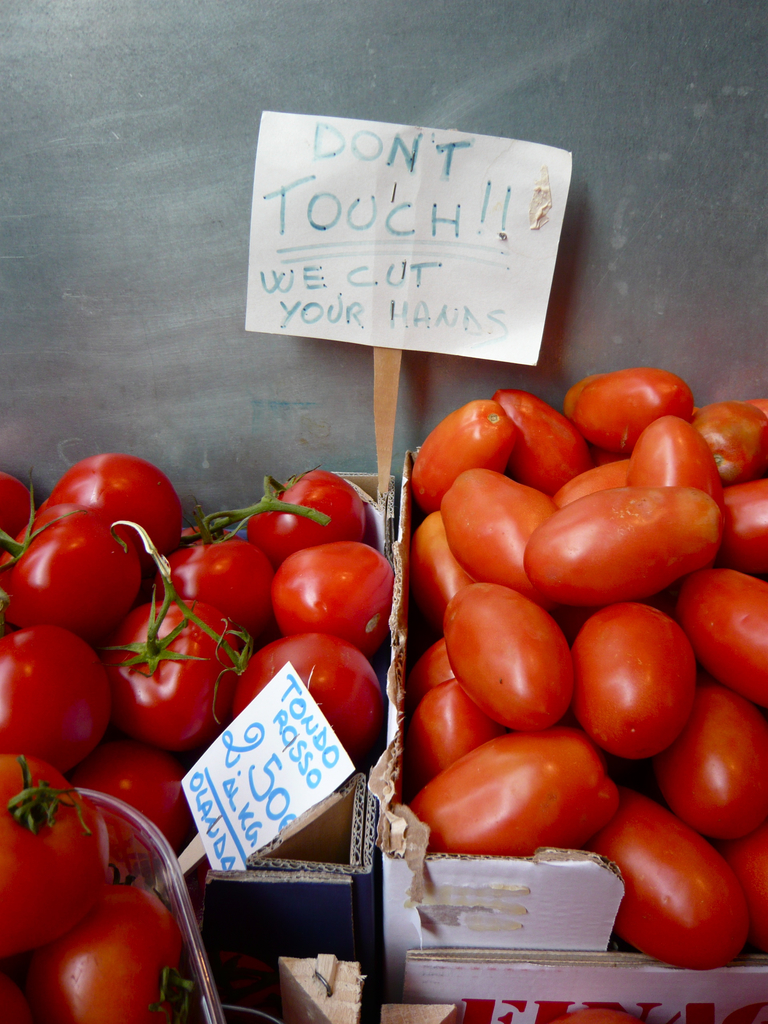 DON'T
TOUCH!!
WE CUT
YOUR HANDS
TONDO
ROSSO
2,50€
AL KG
OLANDA